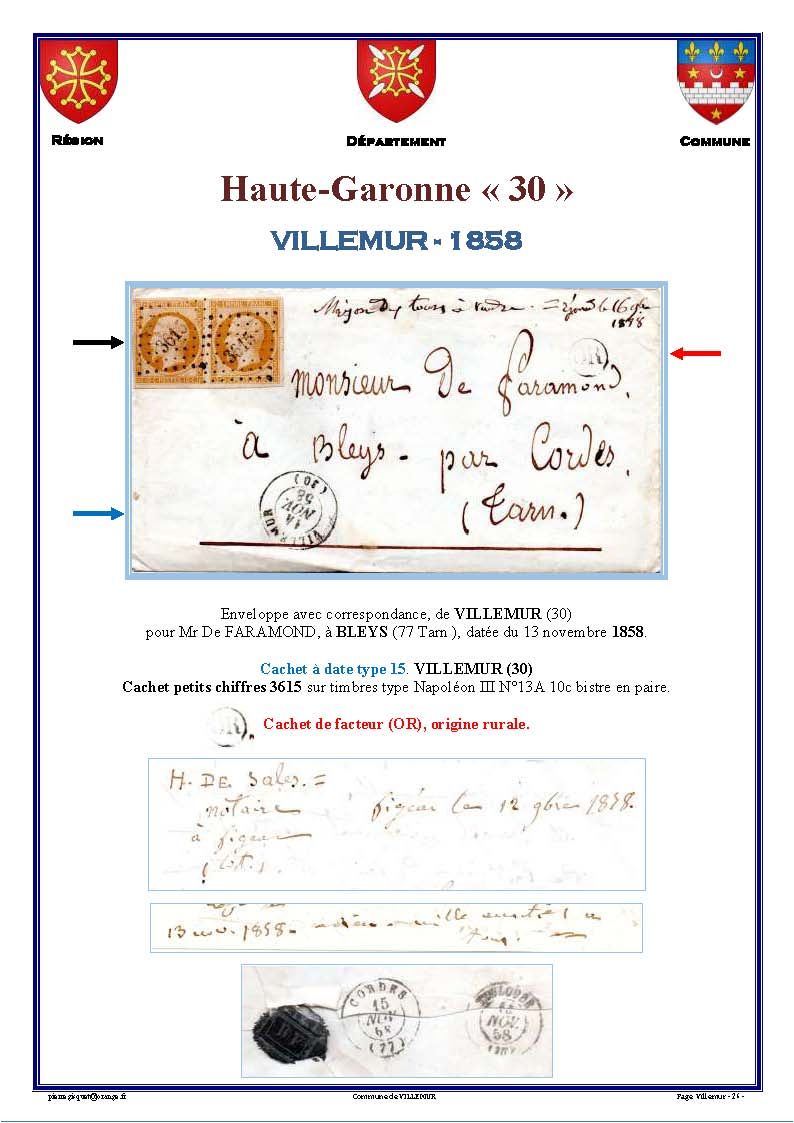 RÉGION
DÉPARTEMENT
COMMUNE
Haute-Garonne « 30 »
VILLEMUR - 1858
EMPIRE FRANC.
3615
3615
Maison des tours à vendre. = répondu le 16 9bre
1858
OR
monsieur De Faramond,
à Bleys - par Cordes,
(Tarn.)
VILLEMUR
14
NOV.
58
(30)
Enveloppe avec correspondance, de VILLEMUR (30)
pour Mr De FARAMOND, à BLEYS (77 Tarn ), datée du 13 novembre 1858.
Cachet à date type 15. VILLEMUR (30)
Cachet petits chiffres 3615 sur timbres type Napoléon III N°13A 10c bistre en paire.
OR
Cachet de facteur (OR), origine rurale.
H. DE Sales. =
notaire
figeac le 12 9bre 1858.
à figeac
(Lot.)
13 nov. 1858-
CORDES
15
NOV
58
(77)
TOULOUSE
NOV.
58
pierre.gisquet@orange.fr
Commune de VILLEMUR
Page Villemur - 26 -